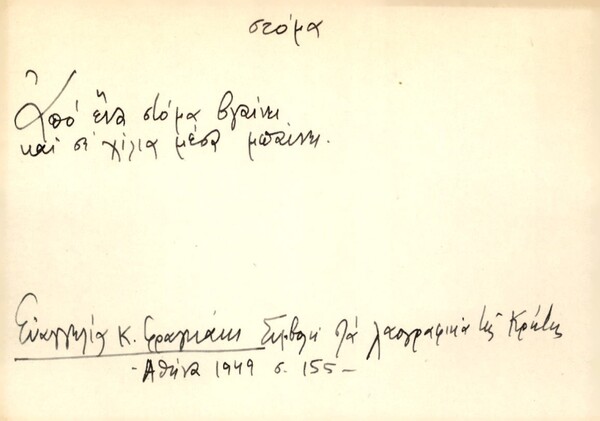 στόμα
Ἀπό ἕνα στόμα βγαίνει
και σέ χίλια μέσα μπαίνει.
Εὐαγγελία Κ. Φραγκάκι Συμβολή στά λαογραφικά τῆς Κρήτης
- Ἀθήνα 1949 σ. 155 -